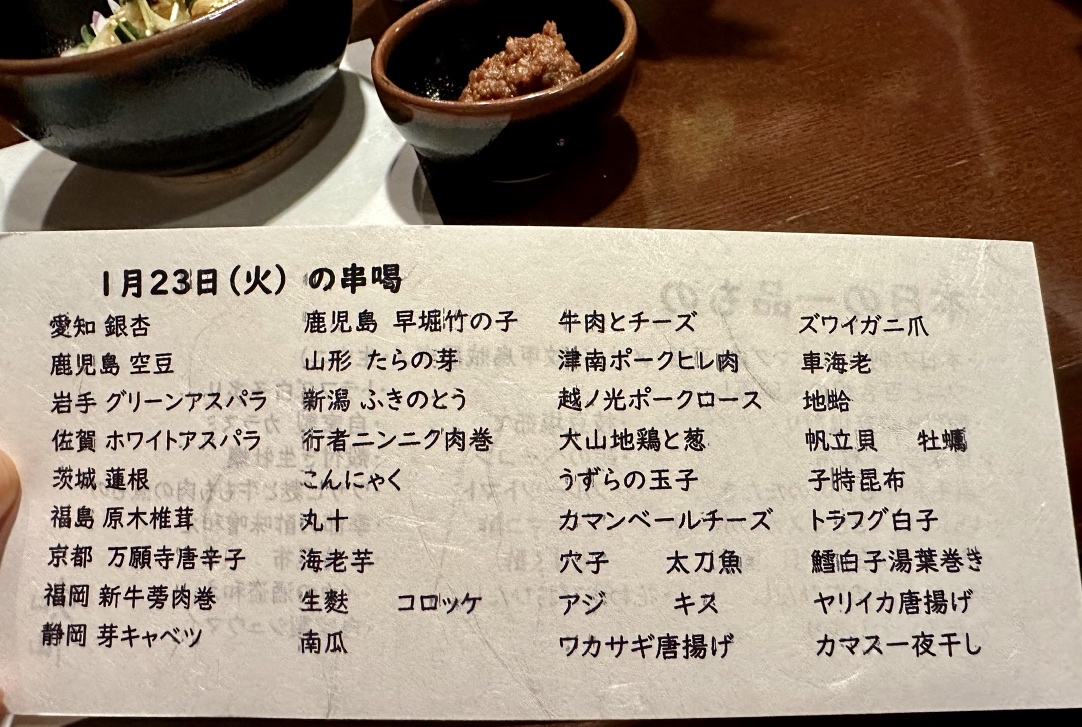 1月23日(火) の串喝
愛知 銀杏
鹿児島 空豆
岩手 グリーンアスパラ
佐賀 ホワイトアスパラ
茨城 蓮根
福島 原木椎茸
京都 万願寺唐辛子
福岡 新牛蒡肉巻
静岡 芽キャベツ
鹿児島 早堀竹の子
山形 たらの芽
新潟 ふきのとう
行者ニンニク肉巻
こんにゃく
丸十
海老芋
生麩 コロッケ
南瓜
牛肉とチーズ
津南ポークヒレ肉
越ノ光ポークロース
大山地鶏と葱
うずらの玉子
カマンベールチーズ
穴子 太刀魚
アジ キス
ワカサギ唐揚げ
ズワイガニ爪
車海老
地蛤
帆立貝 牡蠣
子持昆布
トラフグ白子
鱈白子湯葉巻き
ヤリイカ唐揚げ
カマス一夜干し
本日の一品もの